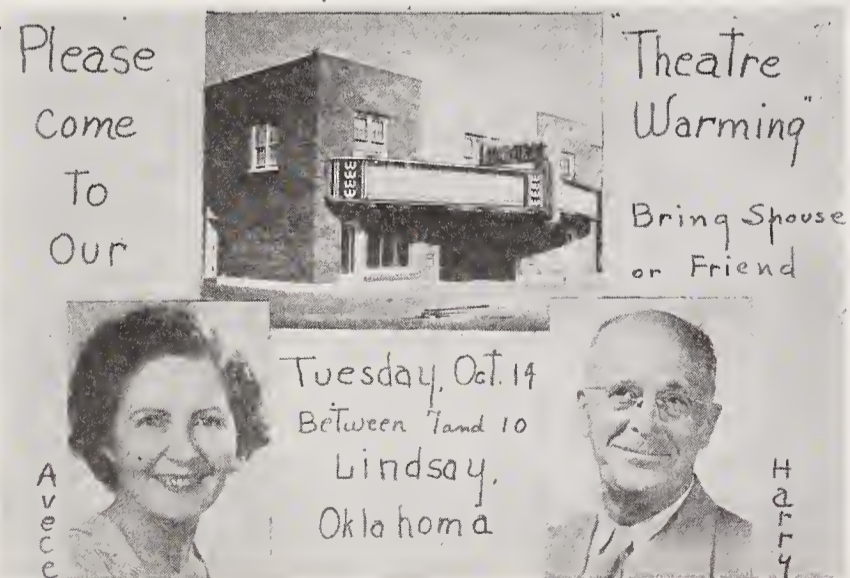 Please
Come
To
Our
"Theatre
Warming"
Bring Spouse
or Friend
Tuesday, Oct. 14
Between 7 and 10
Lindsay,
Oklahoma
Avece
Harry